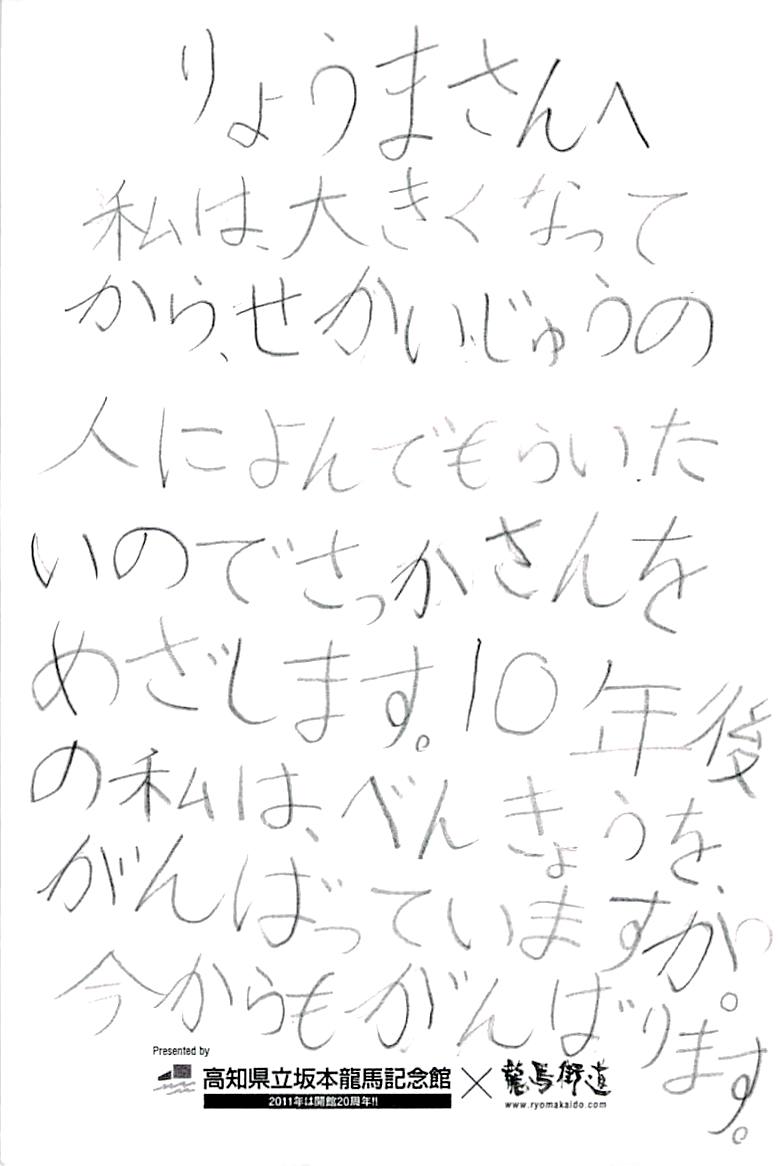 りょうまさんへ
私は、大きくなって
から、せかいじゅうの
人によんでもらいた
いのでさっかさんを
めざします。10年後
の私は、べんきょうを、
がんばっていますか。
今からもがんばります。
Presented by
高知県立坂本龍馬記念館
2011年は開館20周年!!
×
龍馬街道
www.ryomakaido.com